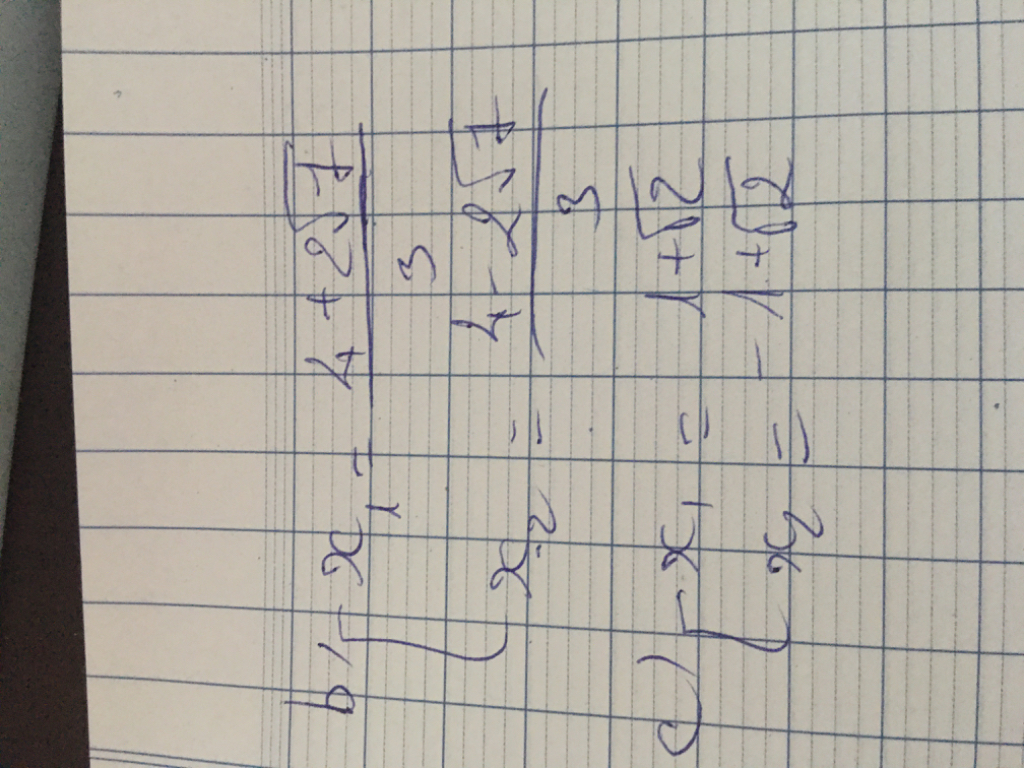 b) [ x₁ = (4 + 2√7)/3
x₂ = (4 - 2√7)/3
c) [ x₁ = 1 + √2
x₂ = - 1 + √2